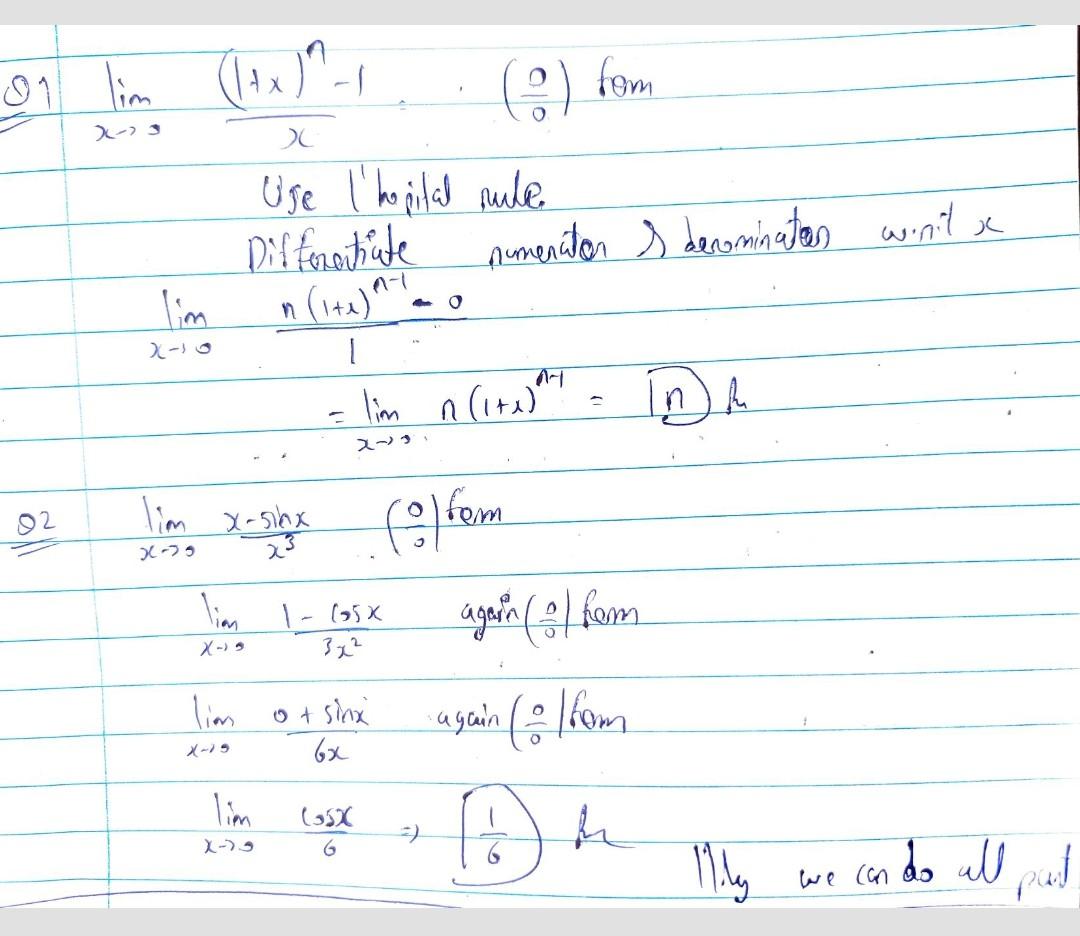 Q1 lim x→0 ((1+x)^n - 1)/x (0/0) form
Use l'hopital rule.
Differentiate numerator & denominator w.r.t x
lim x→0 (n(1+x)^(n-1) - 0)/1
= lim x→0 n(1+x)^(n-1) = n
Q2 lim x→0 (x-sinx)/x^3 (0/0) form
lim x→0 (1-cosx)/(3x^2) again (0/0) form
lim x→0 (0+sinx)/(6x) again (0/0) form
lim x→0 cosx/6 ⇒ 1/6
lllly we can do all part